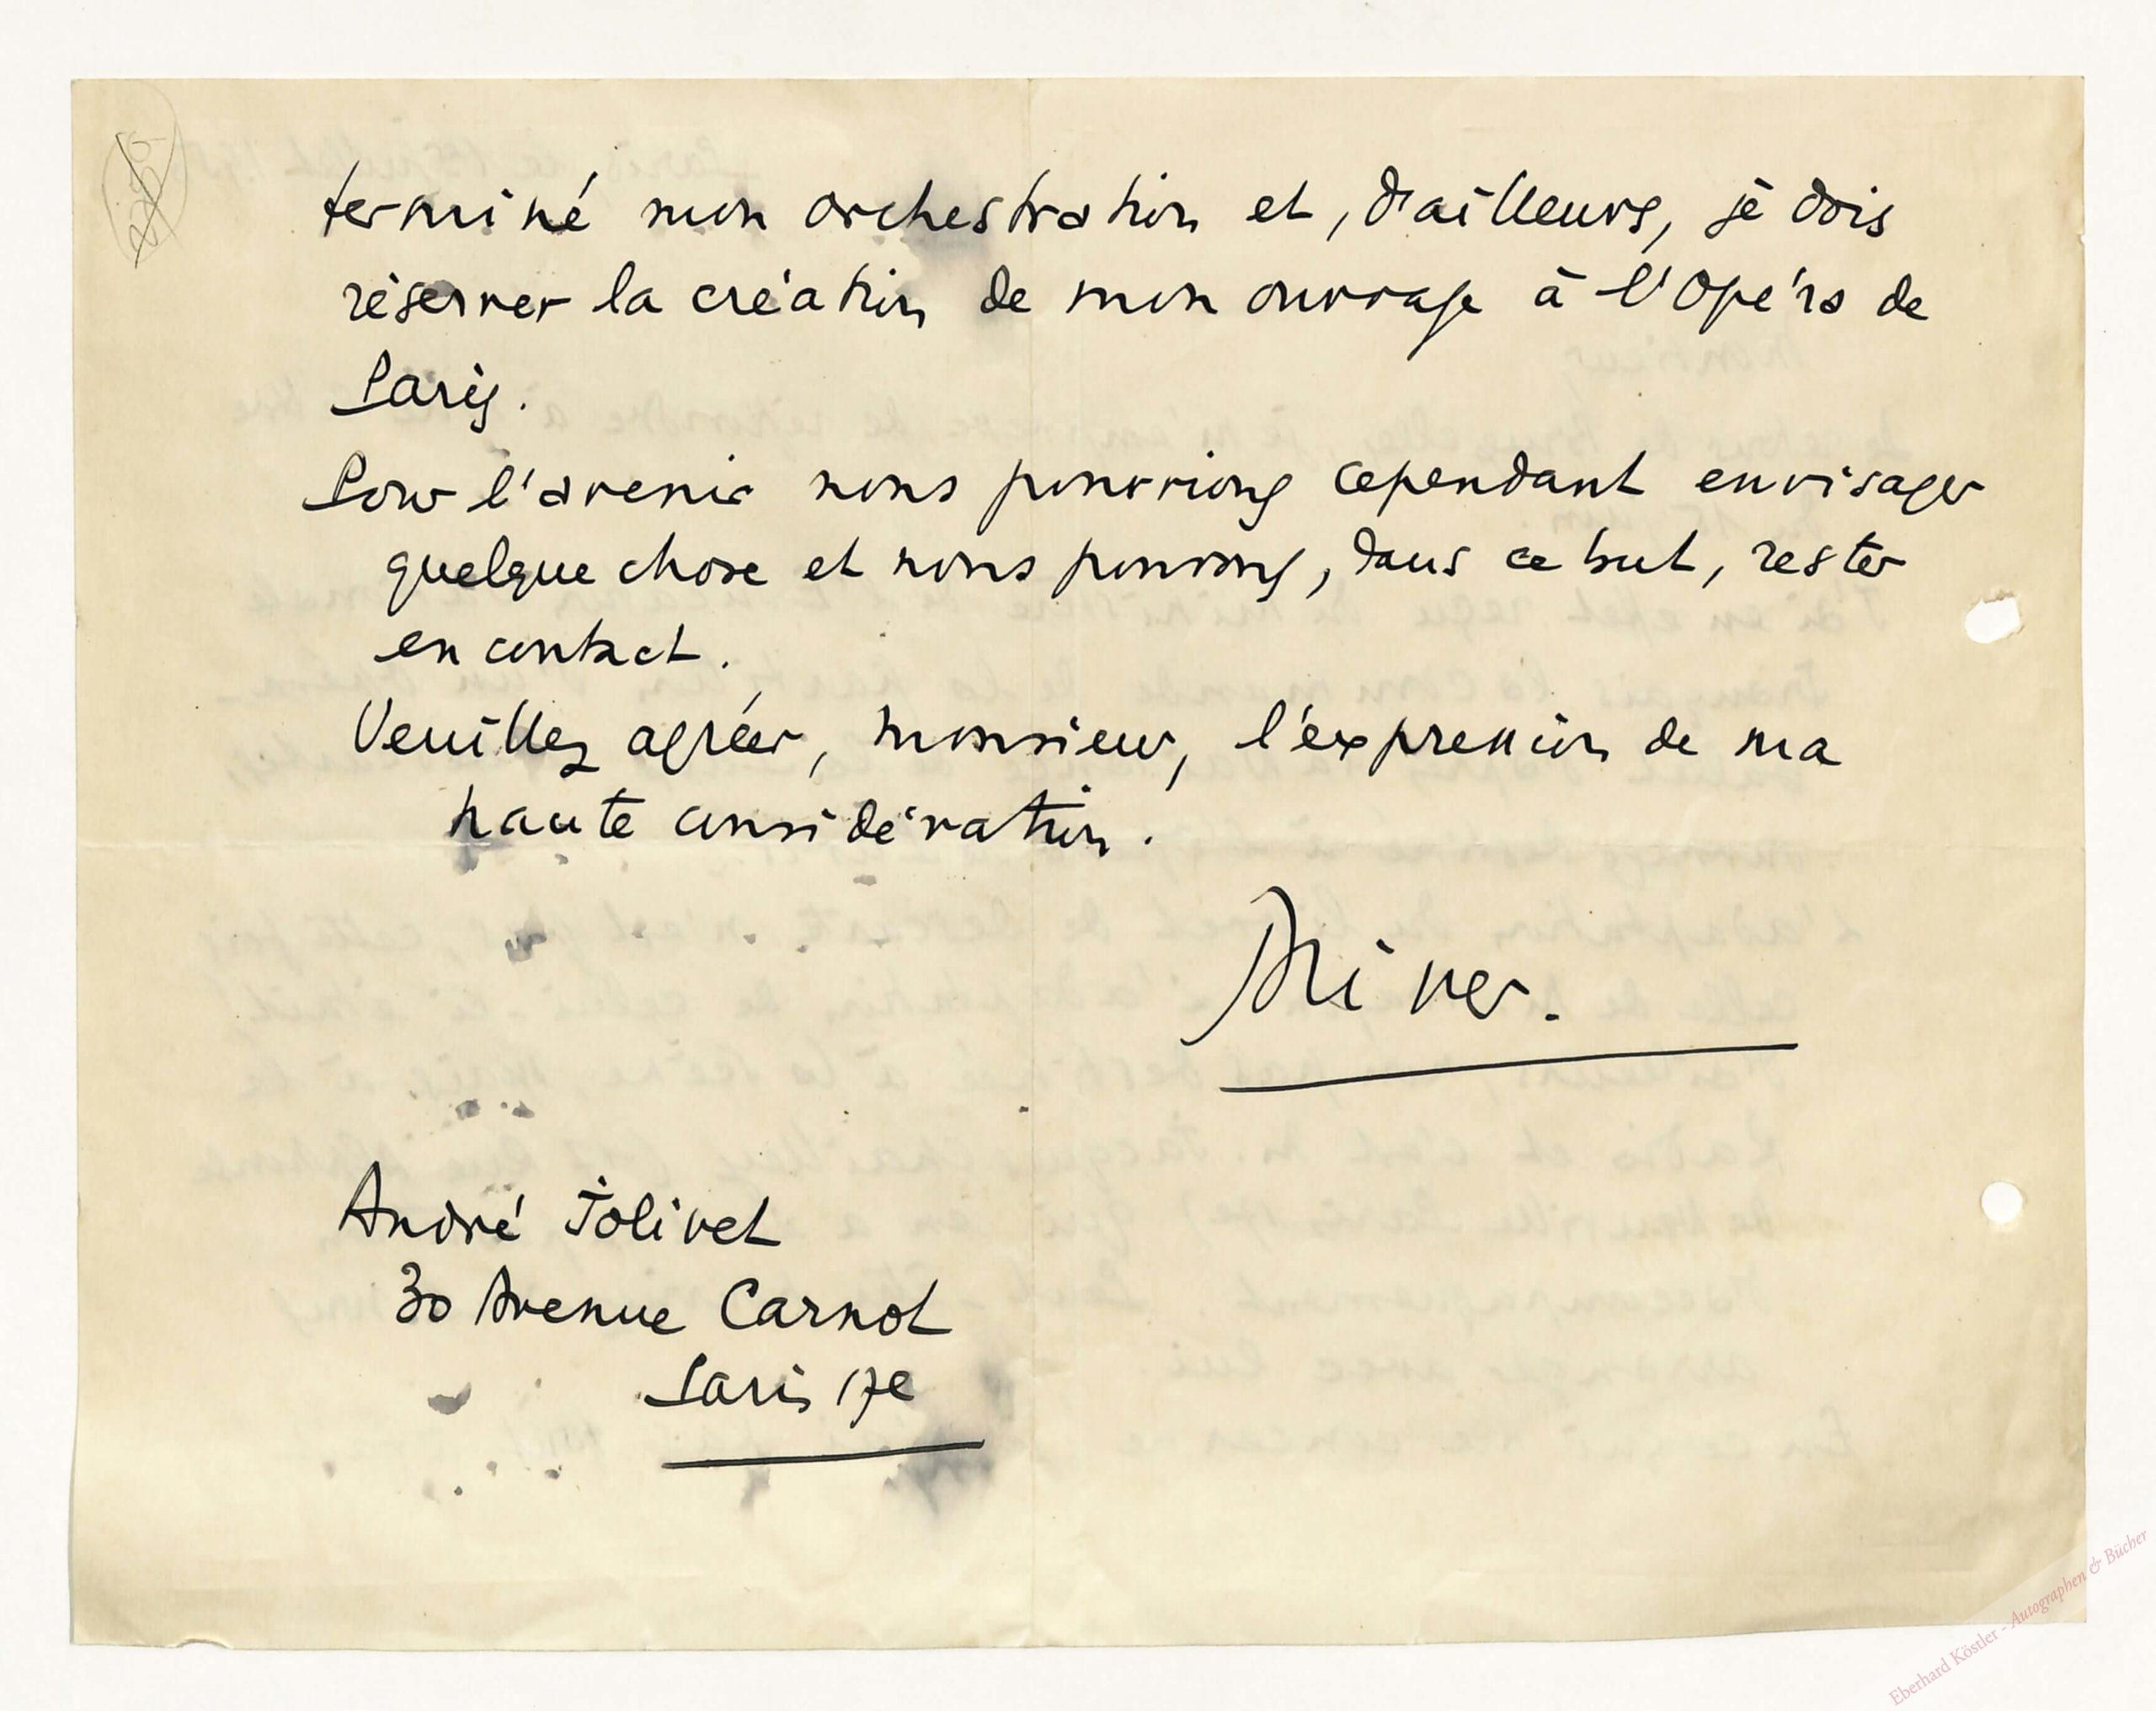 terminé mon orchestration et, d'ailleurs, je dois
réserver la création de mon ouvrage à l'Opéra de
Paris.
Pour l'avenir nous pourrions cependant envisager
quelque chose et nous pouvons, dans ce but, rester
en contact.
Veuillez agréer, monsieur, l'expression de ma
haute considération.
André Jolivet
30 Avenue Carnot
Paris 17e
Eberhard Köstler - Autographen & Bücher